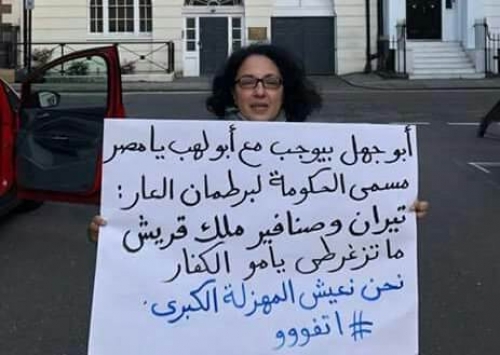 أبوجهل بيوجب مع أبولهب يامصر
مسمى الحكومة لبرطمان العار:
تيران وصنافير ملك قريش
ماتزغرطى يامو الكفار
نحن نعيش المهزلة الكبرى.
#اتفووو